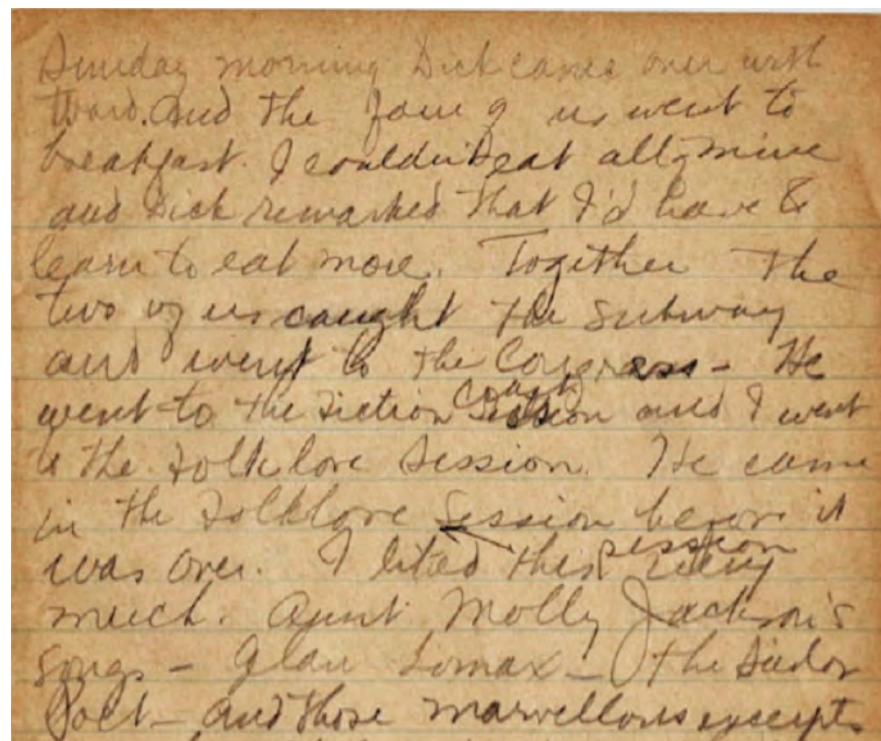 Sunday morning Dick came over with
Ward. and the four of us went to
breakfast. I couldn't eat all of mine
and Dick remarked that I'd have to
learn to eat more. Together the
two of us caught the subway
and went to the Congress - He
went to the Fiction Session and I went
to the Folklore Session. He came
in the Folklore Session before it
was over. I liked this session very
much. Aunt Molly Jackson's
songs - Alan Lomax - the Sailor
Poet - and those marvellous excerpts